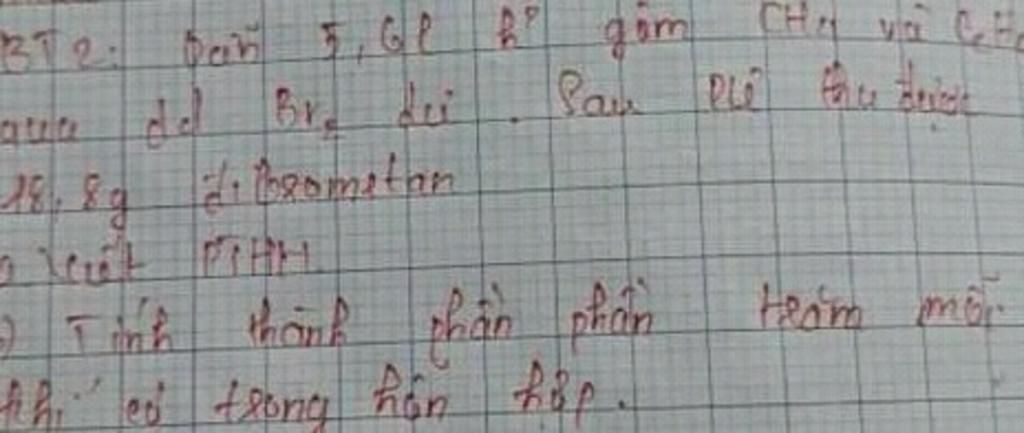 BT2: Dẫn 5,6l hh gồm CH4 và C2H
qua dd Br2 dư. Sau pứ thu được
18,8g đibrometan
Viết PTHH
) Tính thành phần phần trăm mỗi
khí có trong hỗn hợp.